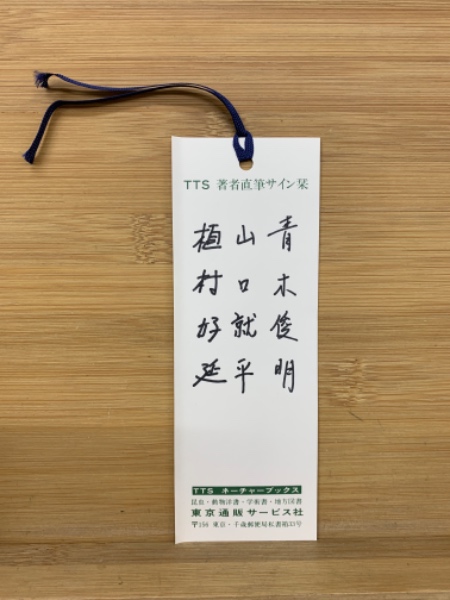 TTS 著者直筆サイン栞
青木俊明
山口就平
植村好延
TTS ネーチャーブックス
昆虫・動物洋書・学術書・地方図書
東京通販サービス社
〒156 東京・千歳郵便局私書箱33号